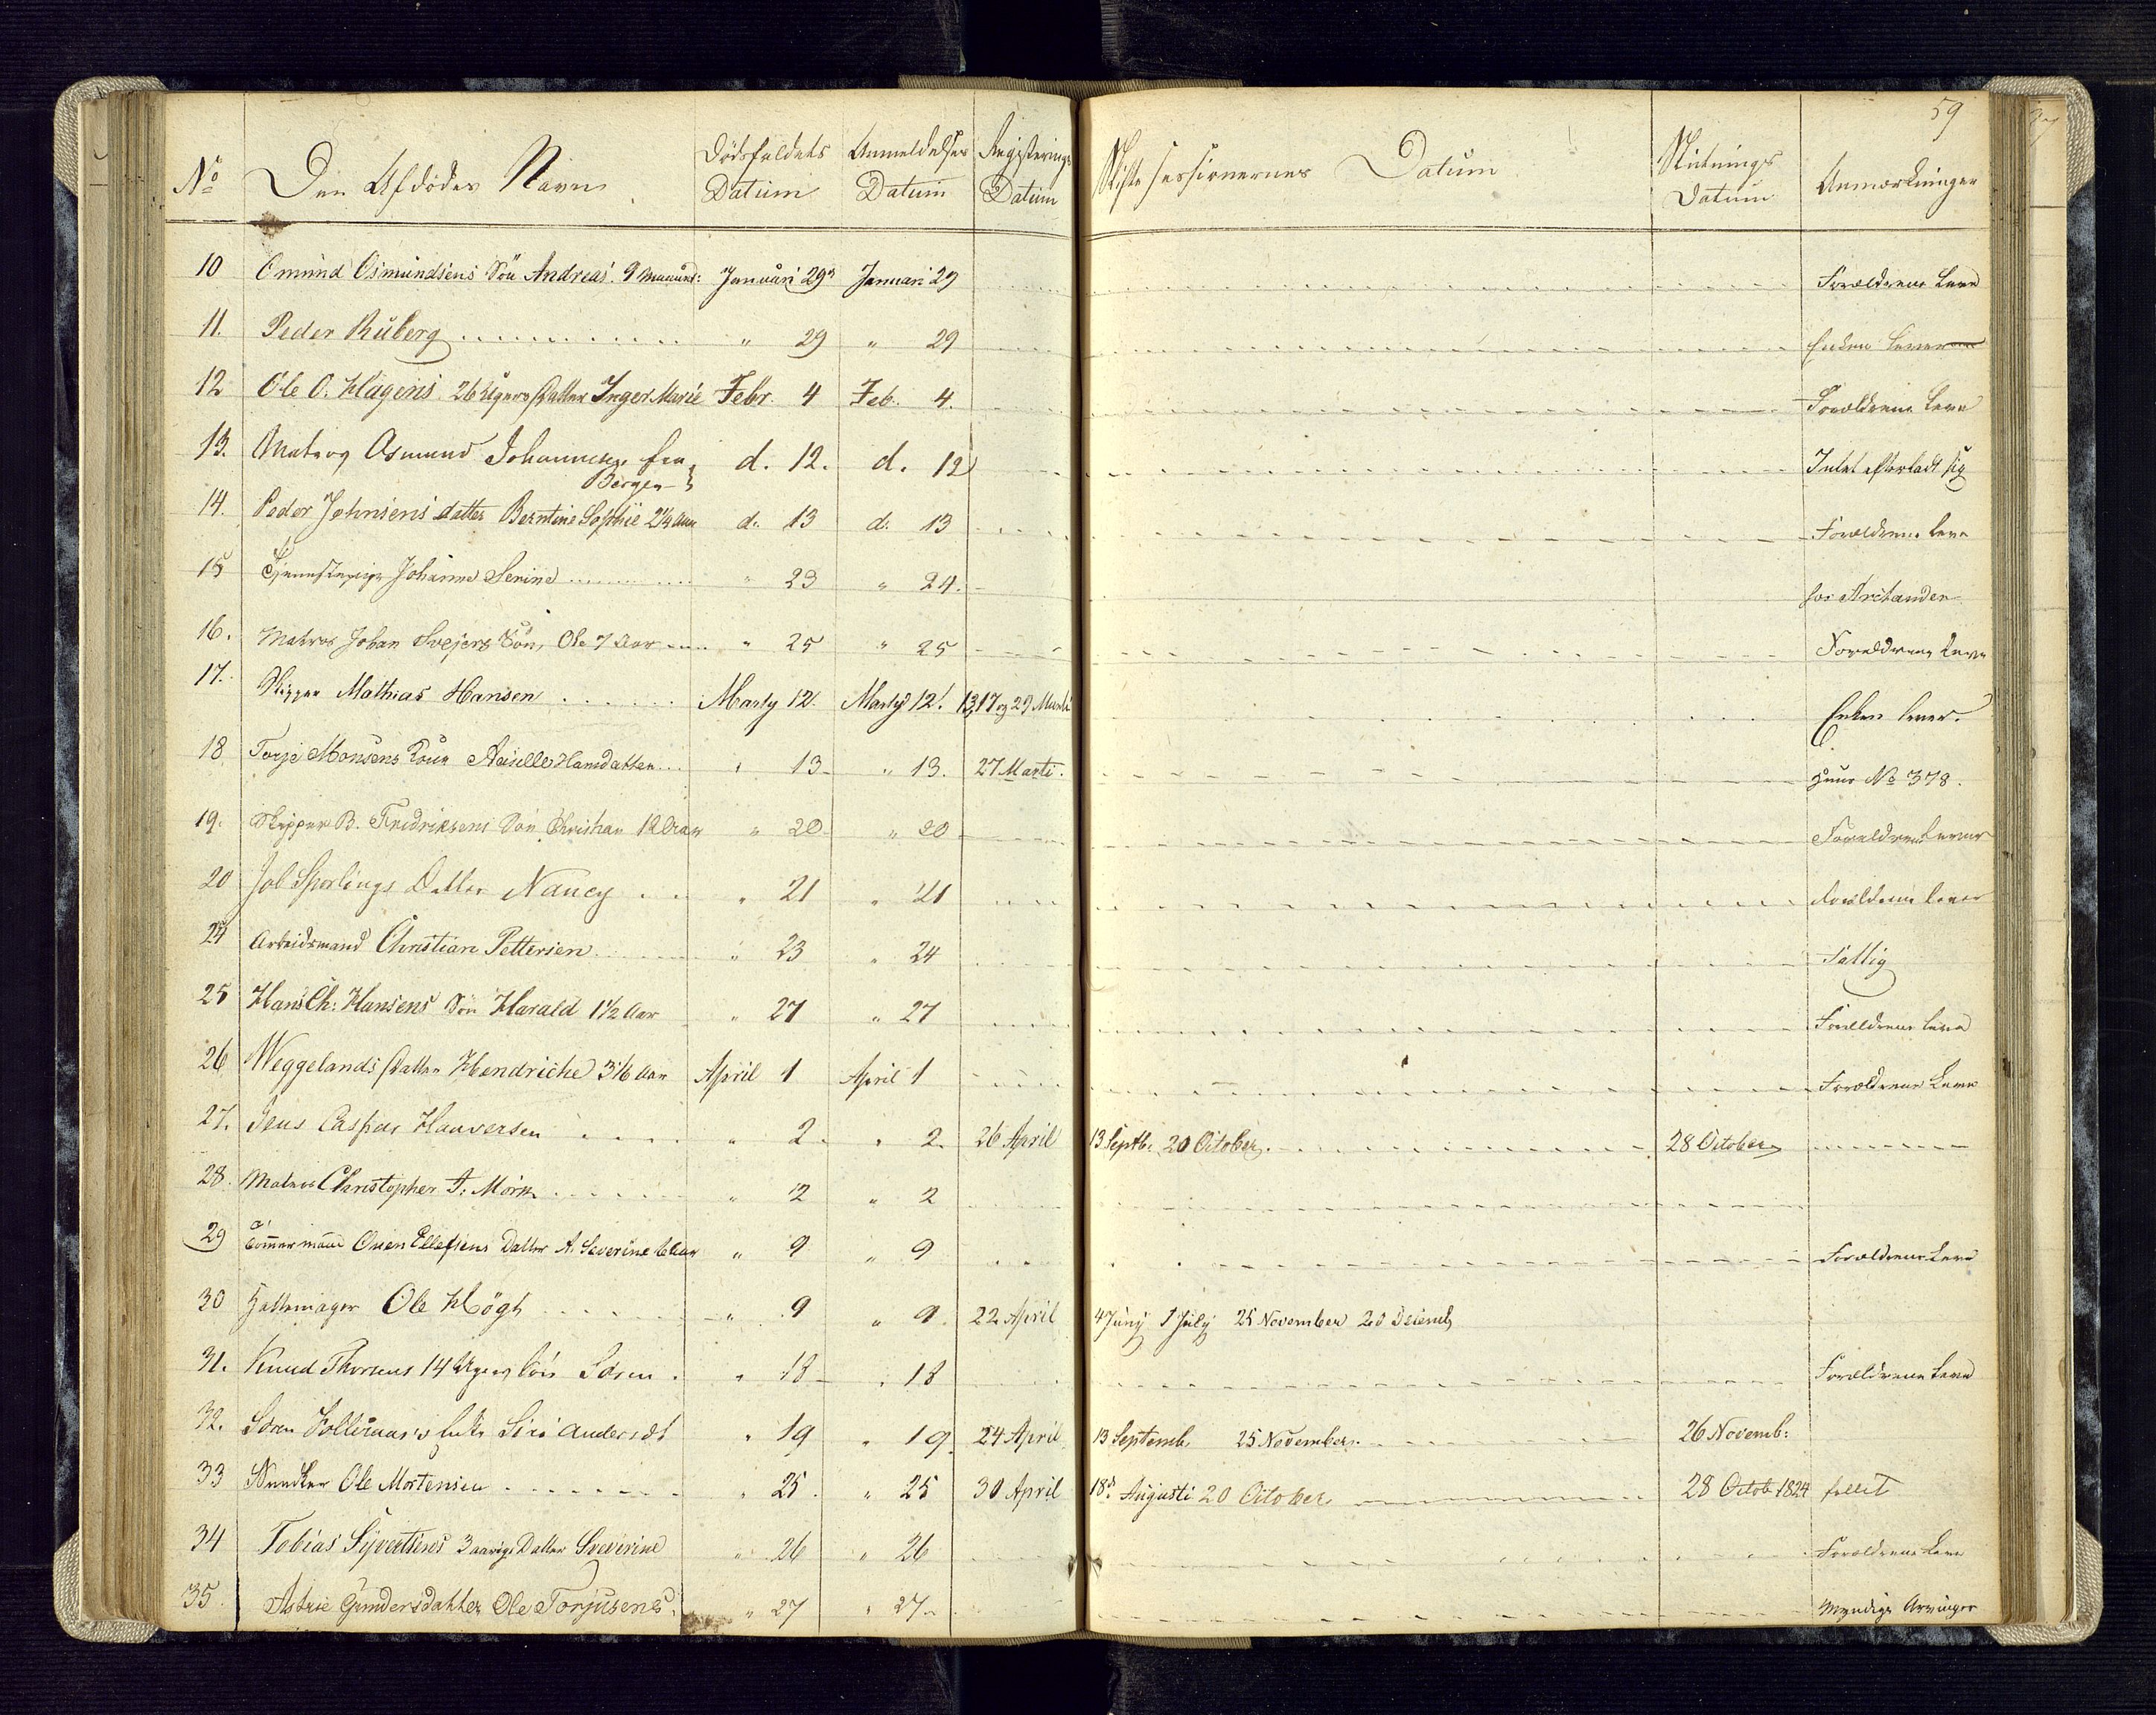 59
No Den Afdødes Navn Dødsfaldets Datum Anmeldelses Datum Registerings Datum Skifte sessionernes Datum Slutnings Datum Anmærkninger
10 Omund Osmundsens Sön Andreas 9 Maaned: Januari 29 Januari 29 Forældrene Leve
11. Peder Ruberg " 29 " 29 Enken Lever
12 Ole O. Hagens 26 Ugers Datter Inger Marie Febr. 4 Feb. 4. Forældrene Leve
13. Matros Asmund Johannesen fra Bergen d. 12. d. 12 Intet efterladt sig
14. Peder Johnsens datter Berntine Sophie 2 1/4 Aar d. 13 d. 13 Forældrene Leve
15 Tjenestepige Johanne Serine " 23 " 24.
16. Matros Johan Svejers Sön, Ole 7 Aar " 25 " 25 Forældrene Leve
17. Skipper Mathias Hansen Marty 12. Marty 12. 13, 17 og 29 Marti Enken lever.
18 Torje Monsens Kone Hansdatter " 13 " 13. 27 Marti. Huus No 378.
19. Skipper B. Fredriksens Sön Christian 12 Aar " 20 " 20 Forældrene Lever
20 Job Sporlings Datter Nancy " 21 " 21 Forældrene Lever
24 Arbeidsmand Christian Pettersen " 23 " 24 Fattig
25 Hans Ch: Hansens Sön Harald 1 1/2 Aar " 27 " 27 Forældrene Leve
26 Weggelands Datter Hendriche 3 1/6 Aar April 1 April 1 Forældrene Leve
27. Jens Caspar Hanversen " 2. " 2. 26 April 13 Septb: 20 October. 28 October
28. Matros Christopher T: Mörk " 2 " 2
29 Tömmermand Ouen Ellefsens Datter A. Severine 6 Aar " 9 " 9 Forældrene Leve
30 Hattemager Ole Högh " 9 " 9. 22 April 4 Juny 1 July 25 November 20 Decemb
31. Knud Thorsens 14 Ugers Sön Sören " 18 " 18 Forældrene Leve
32. Sören Enke Siri Andersdt " 19 " 19. 24 April 13 Septemb. 25 November. 26 Novemb:
33 Snedker Ole Mortensen " 25. " 25 30 April 18d Augusti 20 October 28 Octob 1824 fallit
34 Tobias Syvertsens 3 aarige Datter Severine " 26 " 26 Forældrene Leve
35. Astrie Gundersdatter Ole Torjusens " 27 " 27 Myndige Arvinger